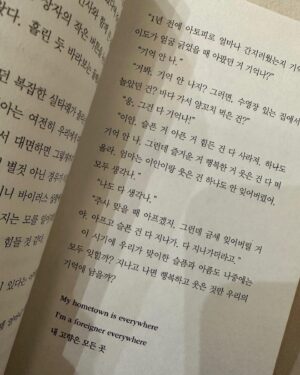 장자의
았다. 홀린 듯 바라보는
던 복잡한 실타래가
아는 여전히 우리에게
서 대면하면 그렇게
별것 아닌
니나 바이러스
지는 모를 일이다
힘들 것 같다.
"1년 전에 아토피로 얼마나 간지러웠는지 기억
이도가 얼굴 긁었을 때 아팠던 거 기억나?"
"기억 안 나."
"거봐, 기억 안 나지? 그러면, 수영장 있는 집에서
놀았던 건? 바다 가서 양꼬치 먹은 건?"
"응, 그건 다 기억나!"
"이안, 슬픈 거 아픈 거 힘든 건 다 사라져. 하나도
기억 안 나. 그런데 즐거운 거 행복한 거 웃은 건 다 떠
올라. 엄마는 이안이랑 웃은 건 하나도 안 잊어버렸어.
모두 생각나."
"나도 다 생각나."
"주사 맞을 때 아프겠지. 그런데 금세 잊어버릴 거
야. 아프고 슬픈 건 다 지나가. 다 지나가더라고."
이 시기에 우리가 맞이한 슬픔과 아픔도 나중에는
모두 잊힐까? 지나고 나면 행복하고 웃은 것만 우리의
기억에 남을까?
My hometown is everywhere
I'm a foreigner everywhere
내 고향은 모든 곳